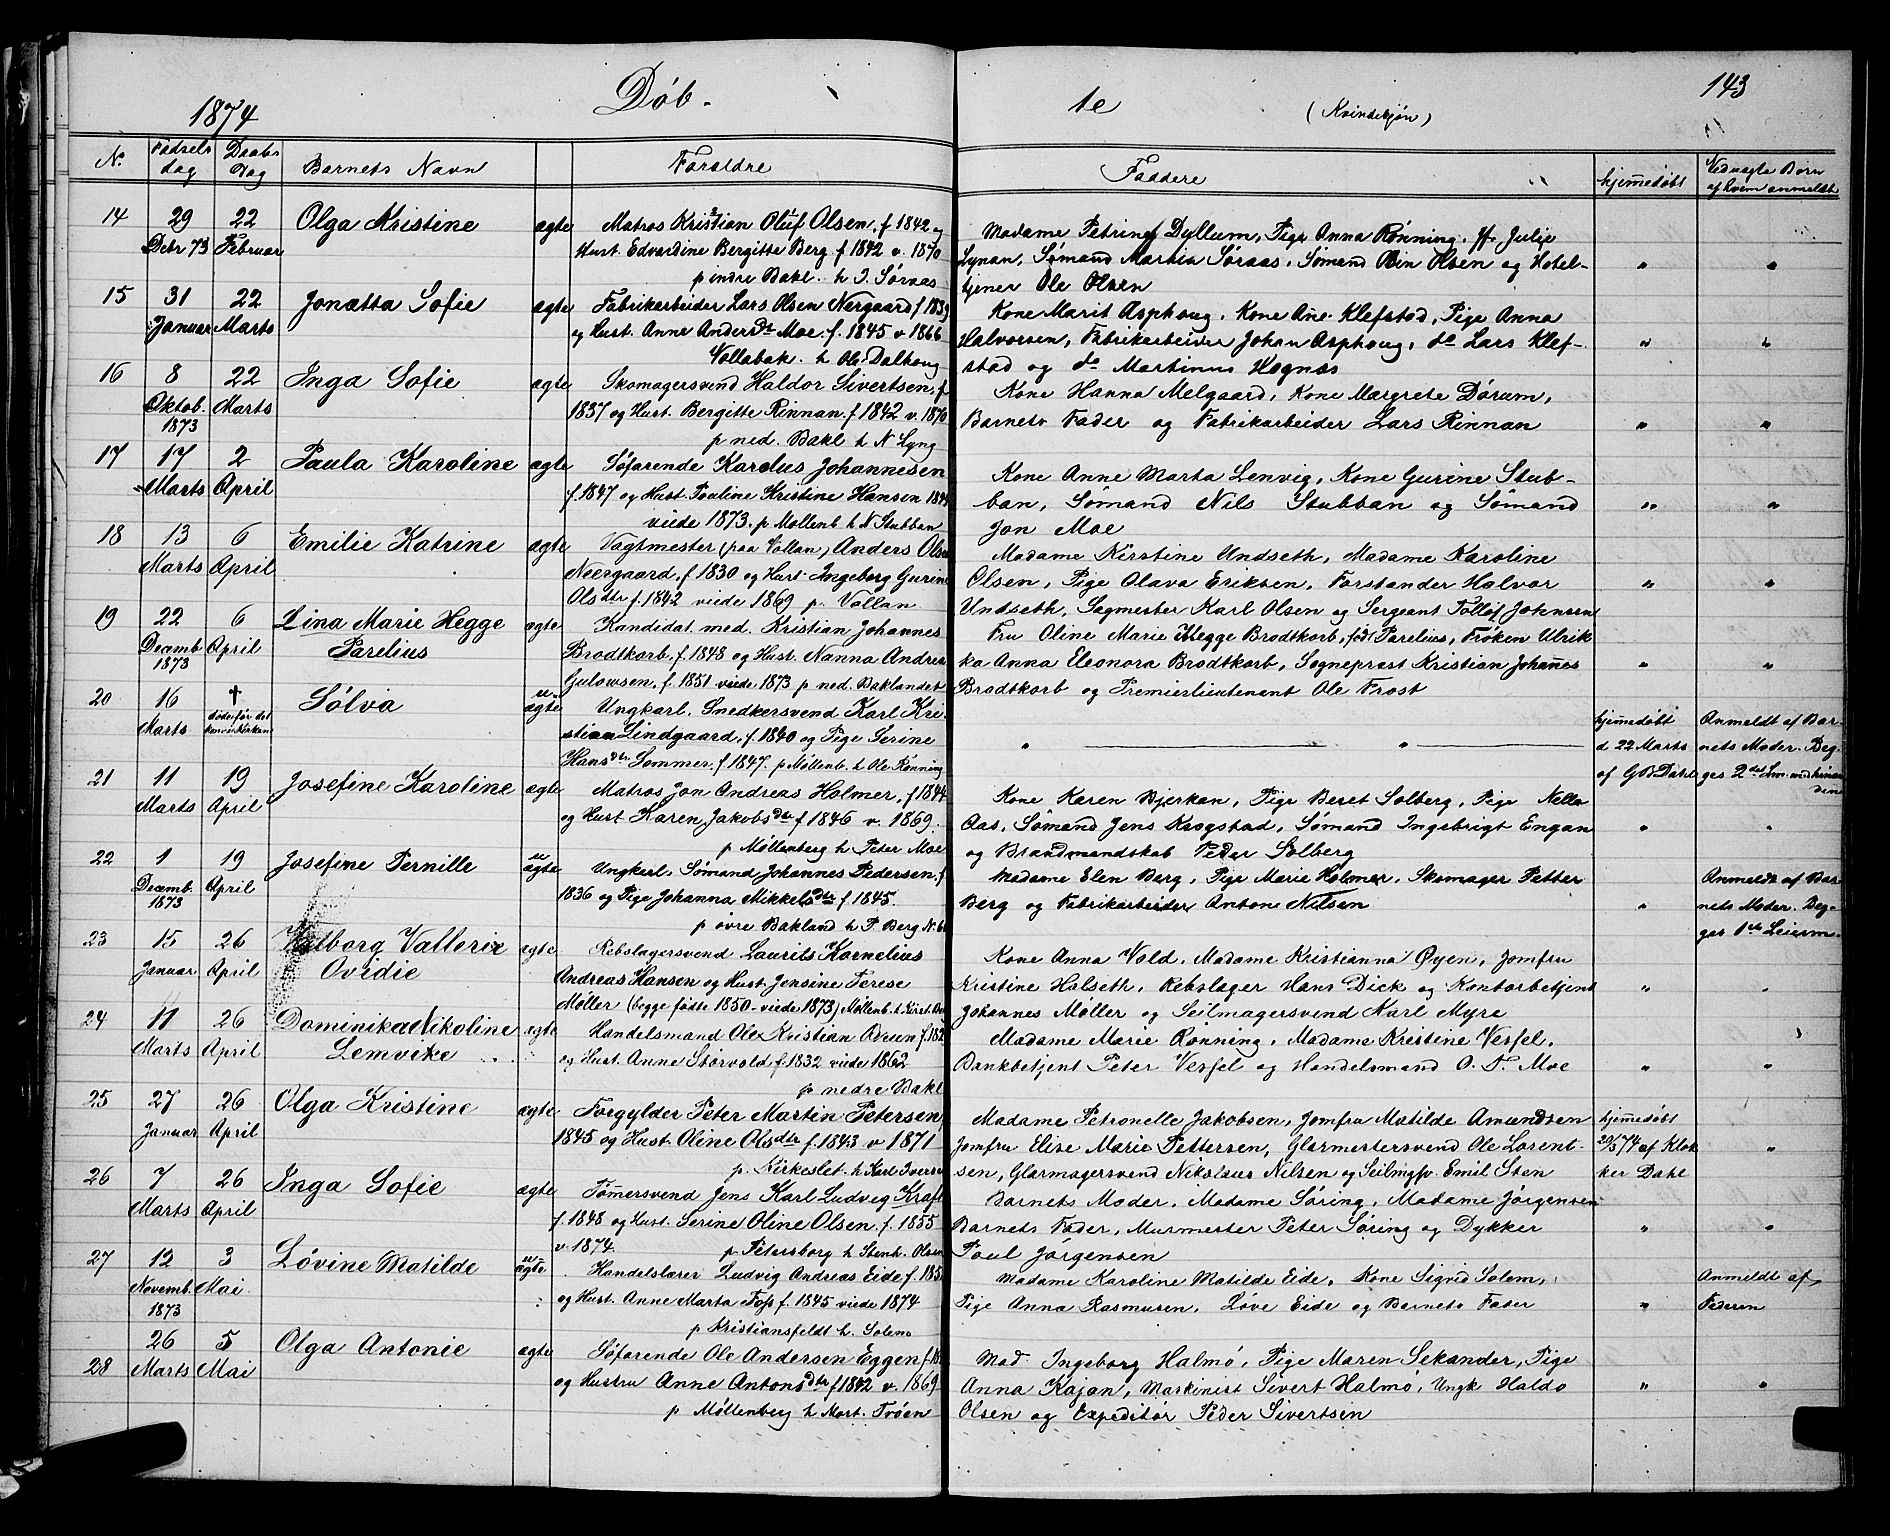 143
1874 Døb- te (Kvindekjøn)
No. Fødsels dag Daabs Dag Barnets Navn Forældre Faddere hjemedøbt Ved uægte Børn af hvem anmeldt
14 29 Decbr 73 22 Februar Olga Kristine ægte Matros Kristian Oluf Olsen, f 1842 og
Hust. Edvardine Bergitte Berg f 1842 v. 1870
p indre Bakl. h I. Søraas
Madame Petrine Dyllum, Pige Anna Rønning, Julie
Lynan, Sømand Martin Søraas, Sømand Olsen og Hotel-
tjener Ole Olsen
" "
15 31 Januar 22 Marts Jonatta Sofie ægte Fabrikarbeider Lars Olsen Nergaard f 1839
og Hust. Anne Andersdtr Moe f. 1845 v 1866
Vollabak. h Ole Dalhoug
Kone Marit Asphoug, Kone Ane Klefstad, Pige Anna
Halvorsen, Fabrikarbeider Johan Asphoug, do Lars Klef-
stad og do Martinus Hognæs
" "
16 8 Oktob. 1873 22 Marts Inga Sofie ægte Skomagersvend Haldor Sivertsen, f
1837 og Hust. Bergitte Rinnan f 1842 v. 1870
p ned. Bakl h N Lyng
Kone Hanna Melgaard, Kone Margrete Dørum,
Barnets Fader og Fabrikarbeider Lars Rinnan
" "
17 17 Marts 2 April Paula Karoline ægte Søfarende Karelus Johannesen
f. 1847 og Hust. Pauline Kristine Hansen 1844
viede 1873. p Møllenb h N Stubban
Kone Anne Marta Lenvig, Kone Gurine Stub-
ban, Sømand Nils Stubban og Sømand
Jon Moe
" "
18 13 Marts 6 April Emilie Katrine ægte Vagtmester (paa Vollan) Anders Olsen
Neergaard, f 1830 og Hust. Ingeborg Gurine
Olsdtr f. 1842 viede 1869 p. Vollan
Madame Kirstine Undseth, Madame Karoline
Olsen, Pige Olava Eriksen, Forstander Halvor
Undseth, Sagmester Karl Olsen og Sergeant Tollof Johnsen
" "
19 22 Decemb. 1873 6 April Lina Marie Hegge
Parelius ægte Kandidat med. Kristian Johannes
Brodtkorb, f. 1848 og Hust. Nanna Andrea
Gulowsen, f. 1851 viede 1873 p ned. Baklandet
Fru Oline Marie Hegge Brodtkorb, født Parelius, Frøken Ulrik-
ka Anna Eleonora Brodtkorb, Sogneprest Kristian Johanes
Brodtkorb og Premierlieutenant Ole Frost
" "
20 16 Marts † døde før det kom i Kirken Sølva uægte Ungkarl. Snedkersvend Karl Kri-
stian Lindgaard, f. 1840 og Pige Serine
Hansdtr Sommer, f. 1847. p Møllenb. h Ole Rønning
" "
hjemedøbt
d 22 Marts
af G B Dahl
Anmeldt af Bar-
nets Moder. Beg-
ges 2det Lm. med hinan
den
21 11 Marts 19 April Josefine Karoline ægte Matros Jon Andreas Holmer, f 1844
og Hust Karen Jakobsdtr f 1846 v. 1869.
p Møllenberg h Peter Moe
Kone Karen Bjerkan, Pige Beret Solberg, Pige Nella
Aas, Sømand Jens Krogstad, Sømand Ingebrigt Engan
og Brandmandskab Peder Solberg
" "
22 1 Decemb. 1873 19 April Josefine Pernille uægte Ungkarl. Sømand Johannes Pedersen, f
1836 og Pige Johanna Mikkelsdtr f 1845.
p øvre Bakland h P. Berg N. 6
Madame Elen Berg, Pige Marie Holmer, Skomager Petter
Berg og Fabrikarbeider Antone Nilsen
"
Anmeldt af Bar-
nets Moder. Beg-
ges 1ste Leierm.
23 15 Januar 26 April Valborg Vallerie
Ovidie ægte Rebslagersvend Laurits Kornelius
Andreas Hansen og Hust. Jensine Terese
Møller (begge fødte 1850 - viede 1873) Møllenb. h Kirst. Berg
Kone Anna Vold, Madame Kristianna Øyen, Jomfru
Kristine Halseth, Rebslager Hans Dick og Kontorbetjent
Johannes Møller og Seilmagersvend Karl Myre
" "
24 11 Marts 26 April Dominika Nikoline
Lemvike ægte Handelsmand Ole Kristian Oversen f. 182
og Hust. Anne Storvold f. 1832 viede 1862
p nedre Bakl
Madame Marie Rønning, Madame Kristine Vesfel,
Bankbetjent Peter Vesfel og Handelsmand O. T. Moe
" "
25 27 Januar 26 April Olga Kristine ægte Forgylder Peter Martin Petersen,
1845 og Hust. Oline Olsdtr f. 1843 v 1871
p. Kirkeslet h Karl Iversen
Madame Petronelle Jakobsen, Jomfru Matilde Amundsen
Jomfru Elise Marie Pettersen, Glarmestersvend Ole Lorent-
sen, Glarmagersvend Nikolaus Nilsen og Seilmgsv. Emil Sten
hjemedøbt
20/3 74 af Klok
ker Dahl
"
26 7 Marts 26 April Inga Sofie ægte Tømersvend Jens Karl Ludvig Kraft
f. 1848 og Hust. Serine Oline Olsen, f. 1855
v. 1874. p Petersborg h Stenh. Olsen
Barnets Moder, Madame Søring, Madame Jørgensen
Barnets Fader, Murmester Peter Søring og Dykker
Poul Jørgensen
" "
27 12 Novemb. 1873 3 Mai Løvine Matilde uægte Handelslærer Ludvig Andreas Eide f. 185
og Hust. Anne Marta Foss f. 1845 viede 1874
p Kristiansfeldt h. Solem
Madame Karoline Matilde Eide, Kone Sigrid Solem,
Pige Anna Rasmusen, Løve Eide og Barnets Fader
"
Anmeldt af
Federen
28 26 Marts 5 Mai Olga Antonie ægte Søfarende Ole Andersen Eggen f. 18
og Hustru Anne Antonsdtr f 1842 v. 1869
p Møllenberg h Mort. Trøen
Mad. Ingeborg Halmø, Pige Maren Sekander, Pige
Anna Kajan, Maskinist Sivert Halmø, Ungk Haldo
Olsen og Expeditør Peder Sivertsen
" "